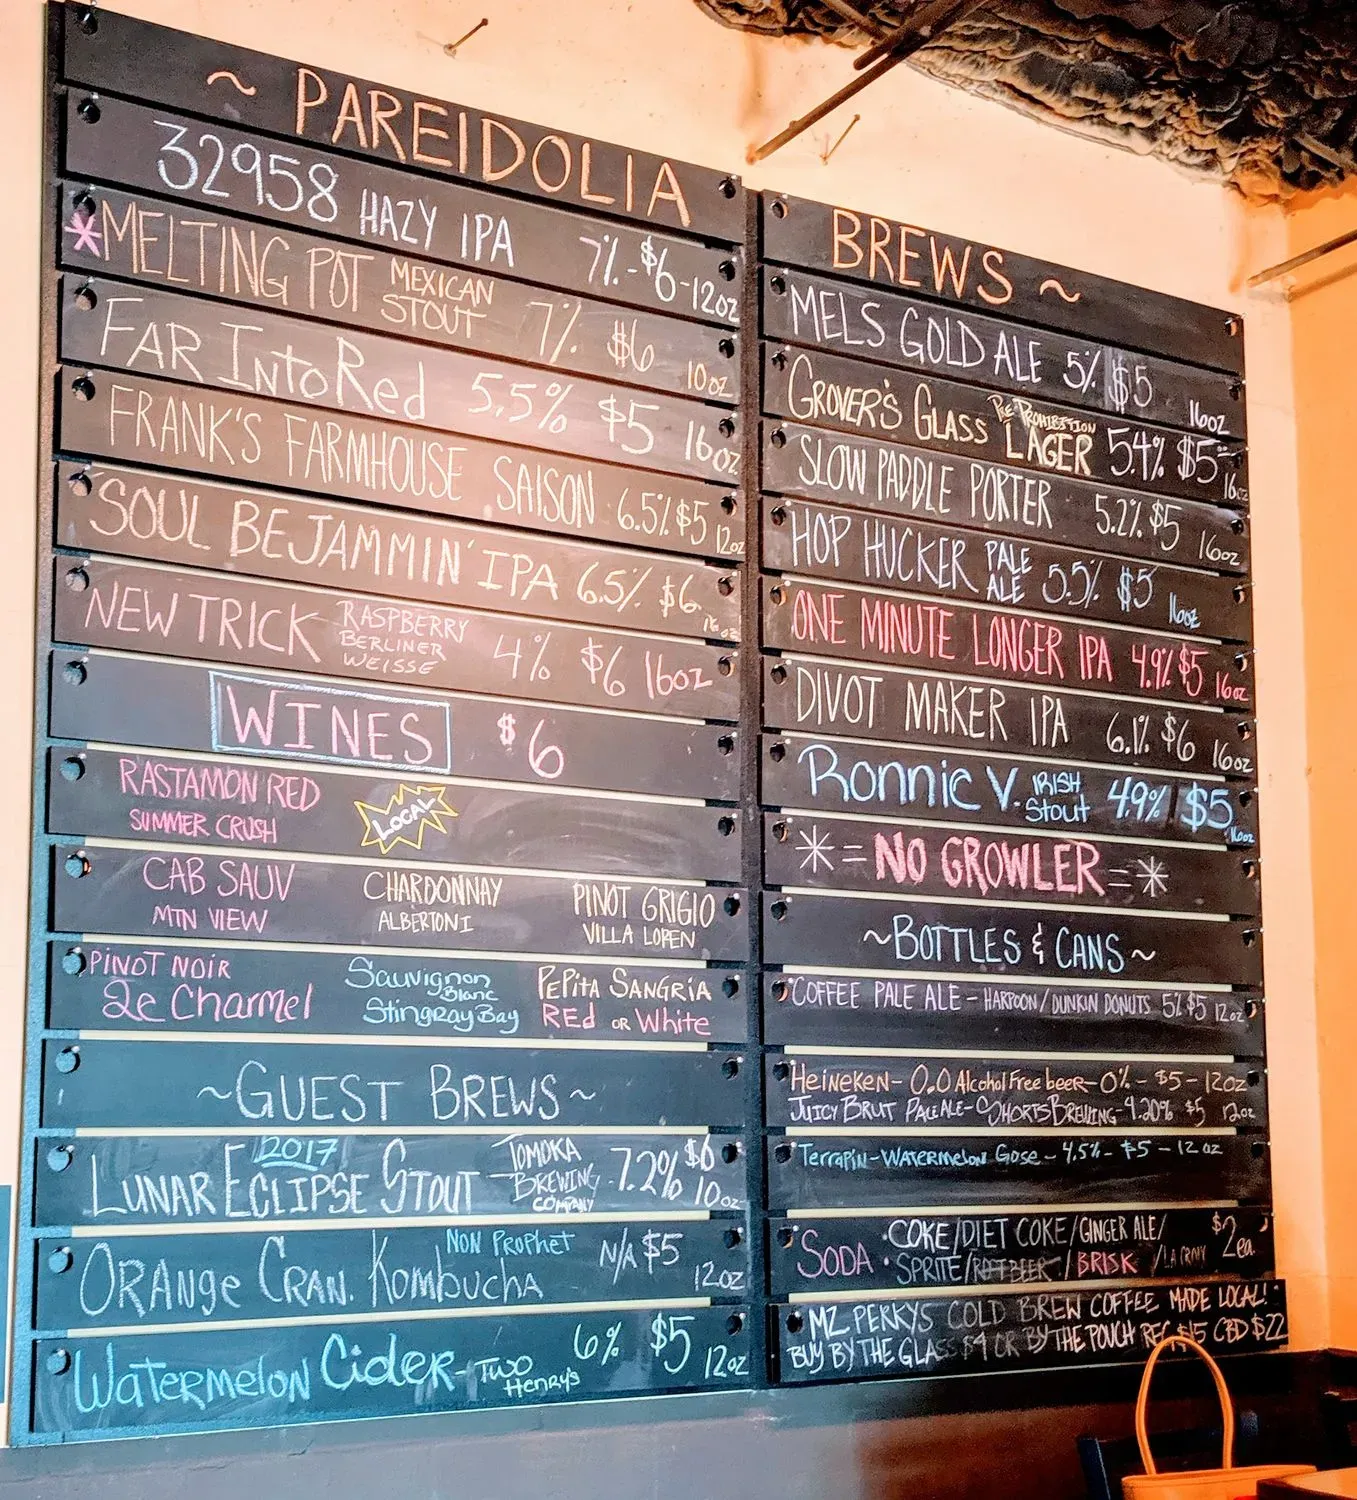 ~ PAREIDOLIA
32958 HAZY IPA 7% - $6 - 12oz
*MELTING POT MEXICAN STOUT 7% $6 10oz
FAR INTO Red 5.5% $5 16oz
FRANK'S FARMHOUSE SAISON 6.5% $5 12oz
SOUL BEJAMMIN' IPA 6.5% $6 16oz
NEW TRICK RASPBERRY BERLINER WEISSE 4% $6 16oz
WINES $6
RASTAMON RED
SUMMER CRUSH LOCAL
CAB SAUV CHARDONNAY PINOT GRIGIO
MTN VIEW ALBERTONI VILLA LOREN
PINOT NOIR Sauvignon Blanc PEPITA SANGRIA
2c Charmel Stingray Bay REd OR White
~GUEST BREWS~
2017
LUNAR ECLIPSE STOUT TOMOKA BREWING COMPANY 7.2% $6 10oz
ORANGE CRAN. KOMBUCHA NON PROPHET N/A $5 12oz
WATERMELON Cider - TWO HENRY'S 6% $5 12oz
BREWS ~
MELS GOLD ALE 5% $5 16oz
GROVER'S GLASS PRE PROHIBITION LAGER 5.4% $5 16oz
SLOW PADDLE PORTER 5.2% $5 16oz
HOP HUCKER PALE ALE 5.5% $5 16oz
ONE MINUTE LONGER IPA 4.9% $5 16oz
DIVOT MAKER IPA 6.1% $6 16oz
Ronnie V. IRISH Stout 4.9% $5 16oz
* = NO GROWLER = *
~BOTTLES & CANS~
COFFEE PALE ALE - HARPOON/DUNKIN DONUTS 5% $5 12oz
HEINEKEN - 0.0 Alcohol Free beer - 0% - $5 - 12oz
JUICY BRUT PALE ALE - SHORTS BREWING - 4.20% $5 12oz
TERRAPIN - WATERMELON GOSE - 4.5% - $5 - 12oz
SODA · COKE/DIET COKE/GINGER ALE/ $2ea.
· SPRITE/ROOT BEER/BRISK/LA CROIX
MZ PERKYS COLD BREW COFFEE MADE LOCAL!
BUY BY THE GLASS $4 OR BY THE POUCH REG $15 CBD $22